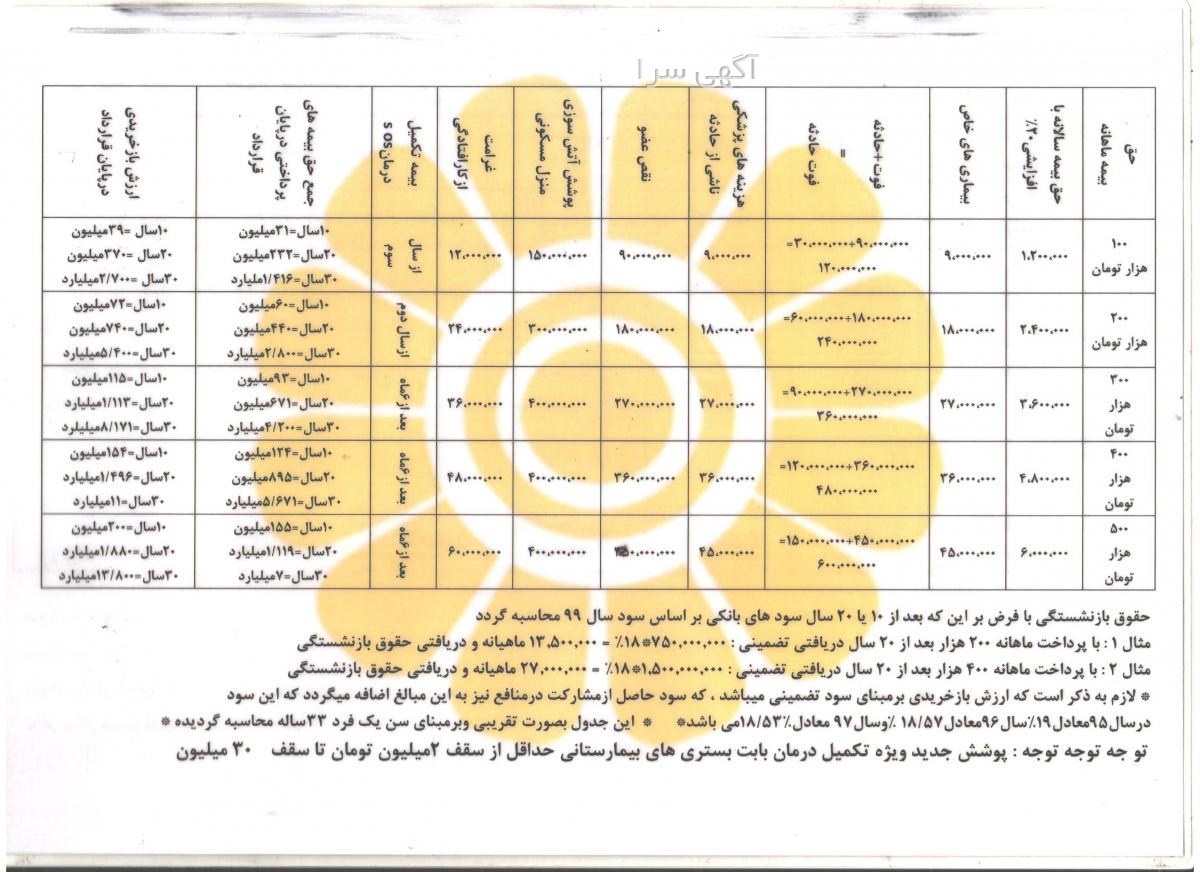 آگهی سرا
حق بیمه ماهانه
حق بیمه سالانه با افزایشی ۲۰٪
بیماری های خاص
فوت +حادثه = فوت حادثه
هزینه های پزشکی ناشی از حادثه
نقص عضو
پوشش آتش سوزی منزل مسکونی
غرامت ازکارافتادگی
بیمه تکمیل درمان s os
جمع حق بیمه های پرداختی درپایان قرارداد
ارزش بازخریدی درپایان قرارداد
۱۰۰ هزار تومان
۱.۲۰۰.۰۰۰
۹.۰۰۰.۰۰۰
۹۰.۰۰۰.۰۰۰+۳۰.۰۰۰.۰۰۰=
۱۲۰.۰۰۰.۰۰۰
۹.۰۰۰.۰۰۰
۹۰.۰۰۰.۰۰۰
۱۵۰.۰۰۰.۰۰۰
۱۲.۰۰۰.۰۰۰
از سال سوم
۱۰سال=۳۱میلیون
۲۰سال=۲۳۲میلیون
۳۰سال=۱/۴۱۶ملیارد
۱۰سال =۳۹میلیون
۲۰سال =۳۷۰میلیون
۳۰سال =۲/۷۰۰میلیارد
۲۰۰ هزار تومان
۲.۴۰۰.۰۰۰
۱۸.۰۰۰.۰۰۰
۱۸۰.۰۰۰.۰۰۰+۶۰.۰۰۰.۰۰۰=
۲۴۰.۰۰۰.۰۰۰
۱۸.۰۰۰.۰۰۰
۱۸۰.۰۰۰.۰۰۰
۳۰۰.۰۰۰.۰۰۰
۲۴.۰۰۰.۰۰۰
ازسال دوم
۱۰سال=۶۰میلیون
۲۰سال=۴۴۰میلیون
۳۰سال=۲/۸۰۰میلیارد
۱۰سال=۷۲میلیون
۲۰سال=۷۴۰میلیون
۳۰سال=۵/۴۰۰میلیارد
۳۰۰ هزار تومان
۳.۶۰۰.۰۰۰
۲۷.۰۰۰.۰۰۰
۲۷۰.۰۰۰.۰۰۰+۹۰.۰۰۰.۰۰۰=
۳۶۰.۰۰۰.۰۰۰
۲۷.۰۰۰.۰۰۰
۲۷۰.۰۰۰.۰۰۰
۴۰۰.۰۰۰.۰۰۰
۳۶.۰۰۰.۰۰۰
بعد از ۶ماه
۱۰سال=۹۳میلیون
۲۰سال=۶۷۱میلیون
۳۰سال=۴/۲۰۰میلیارد
۱۰سال=۱۱۵میلیون
۲۰سال=۱/۱۱۳میلیارد
۳۰سال=۸/۱۷۱میلیارد
۴۰۰ هزار تومان
۴.۸۰۰.۰۰۰
۳۶.۰۰۰.۰۰۰
۳۶۰.۰۰۰.۰۰۰+۱۲۰.۰۰۰.۰۰۰=
۴۸۰.۰۰۰.۰۰۰
۳۶.۰۰۰.۰۰۰
۳۶۰.۰۰۰.۰۰۰
۴۰۰.۰۰۰.۰۰۰
۴۸.۰۰۰.۰۰۰
بعد از۶ماه
۱۰سال=۱۲۴میلیون
۲۰سال=۸۹۵میلیون
۳۰سال=۵/۶۷۱میلیارد
۱۰سال=۱۵۴میلیون
۲۰سال=۱/۴۹۶میلیارد
۳۰سال=۱۱میلیارد
۵۰۰ هزار تومان
۶.۰۰۰.۰۰۰
۴۵.۰۰۰.۰۰۰
۴۵۰.۰۰۰.۰۰۰+۱۵۰.۰۰۰.۰۰۰=
۶۰۰.۰۰۰.۰۰۰
۴۵.۰۰۰.۰۰۰
۴۰۰.۰۰۰.۰۰۰
۶۰.۰۰۰.۰۰۰
بعد از ۶ماه
۱۰سال=۱۵۵میلیون
۲۰سال=۱/۱۱۹میلیارد
۳۰سال=۷میلیارد
۱۰سال=۲۰۰میلیون
۲۰سال=۱/۸۸۰میلیارد
۳۰سال=۱۳/۸۰۰میلیارد
حقوق بازنشستگی با فرض بر این که بعد از ۱۰ یا ۲۰ سال سود های بانکی بر اساس سود سال ۹۹ محاسبه گردد
مثال ۱ : با پرداخت ماهانه ۲۰۰ هزار بعد از ۲۰ سال دریافتی تضمینی : ۷۵۰,۰۰۰,۰۰۰*۱۸٪ = ۱۳,۵۰۰,۰۰۰ ماهیانه و دریافتی حقوق بازنشستگی
مثال ۲ : با پرداخت ماهانه ۴۰۰ هزار بعد از ۲۰ سال دریافتی تضمینی : ۱,۵۰۰,۰۰۰,۰۰۰*۱۸٪ = ۲۷,۰۰۰,۰۰۰ ماهیانه و دریافتی حقوق بازنشستگی
* لازم به ذکر است که ارزش بازخریدی برمبنای سود تضمینی میباشد ، که سود حاصل ازمشارکت درمنافع نیز به این مبالغ اضافه میگردد که این سود
درسال۹۵معادل۱۹٪سال۹۶معادل۱۸/۵۷ ٪وسال۹۷ معادل۱۸/۵۳٪می باشد* * این جدول بصورت تقریبی وبرمبنای سن یک فرد ۳۳ساله محاسبه گردیده *
تو جه توجه توجه : پوشش جدید ویژه تکمیل درمان بابت بستری های بیمارستانی حداقل از سقف ۲میلیون تومان تا سقف ۳۰ میلیون